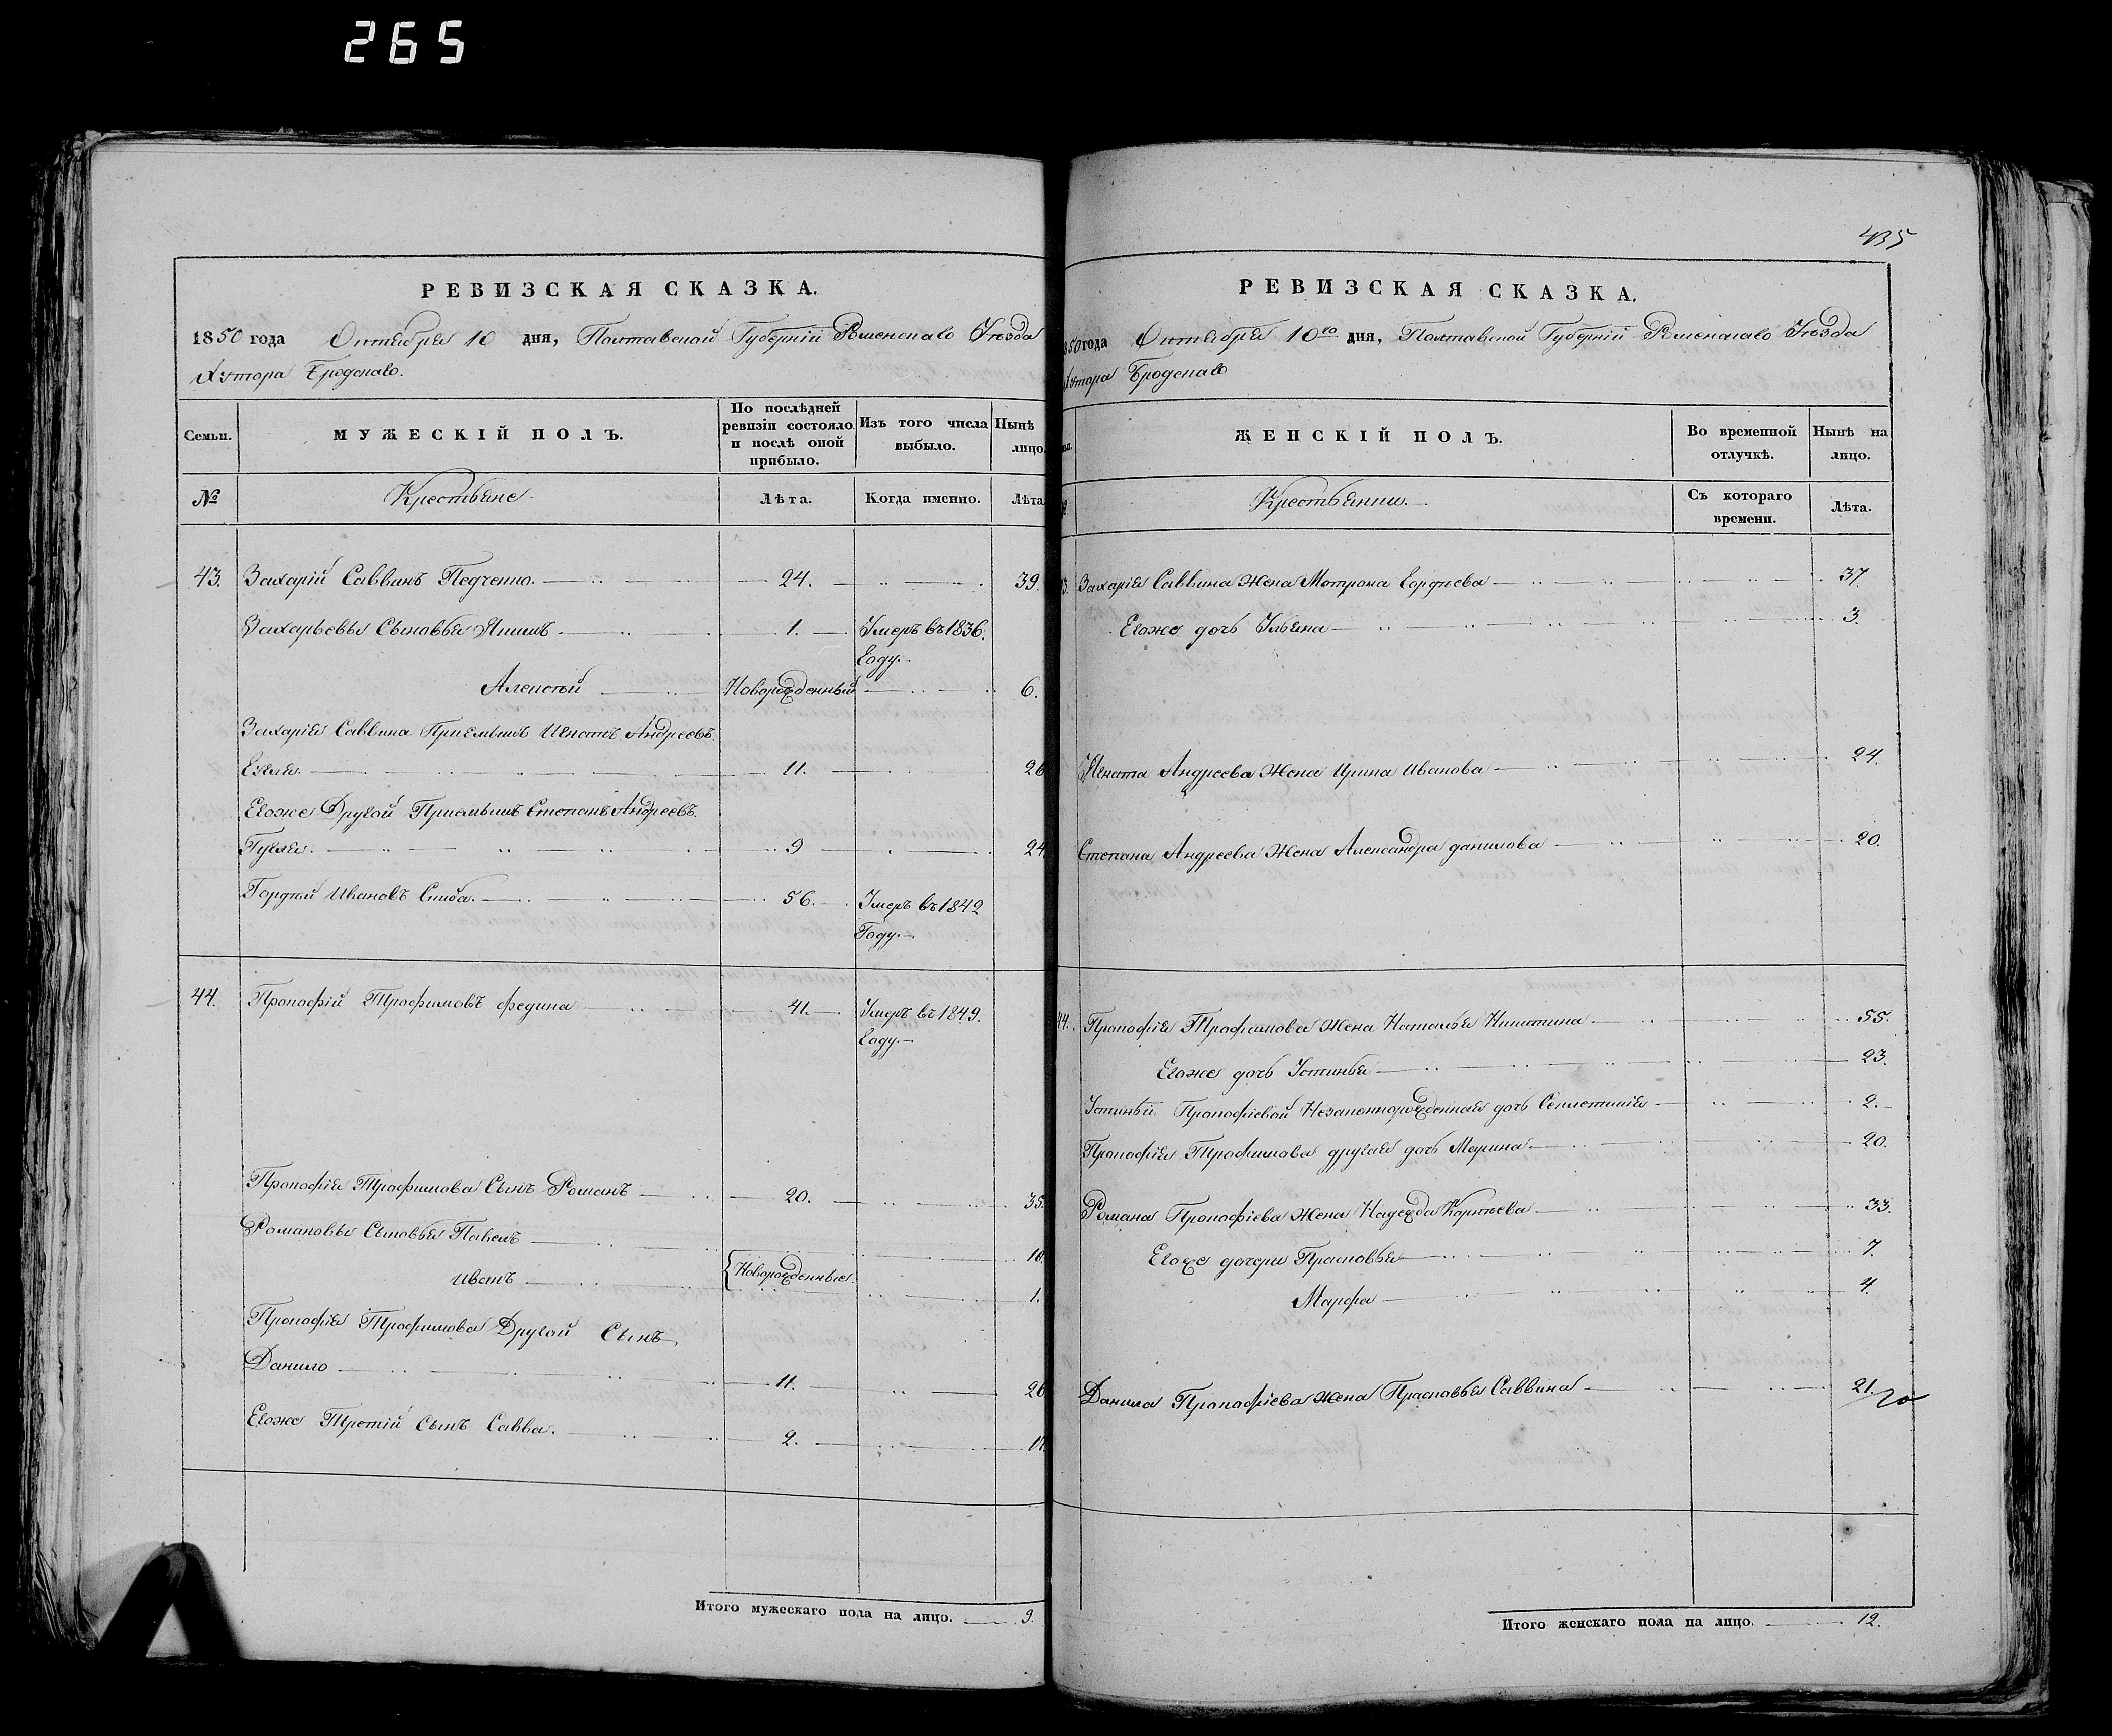 265
435
РЕВИЗСКАЯ СКАЗКА.
1850 года Октября 10 дня, Полтавской Губерніи Роменскаго Уѣзда
Хутора Бродскаго.
Семьи.
МУЖЕСКІЙ ПОЛЪ.
По послѣдней ревизіи состояло и послѣ оной прибыло.
Изъ того числа выбыло.
Нынѣ лицо.
№
Крестьяне.
Лѣта.
Когда именно.
Лѣта
43. Захарій Саввинъ Педченко. 24. 39.
Захарьевы Сыновья Якимъ 1. Умеръ въ 1836.
Году.
Алексѣй Новорожденный 6.
Захарія Саввина Приемышъ Игнатъ Андреевъ
11. 26
Егоже Другой Приемышъ Степанъ Андреевъ.
9 24
Гордѣй Ивановъ Скиба. 56. Умеръ въ 1842
Году.
44. Прокофій Трофимовъ Федина 41. Умеръ въ 1849.
Году.
Прокофія Трофимова Сынъ Романъ 20. 35.
Романовы Сыновья Павелъ 10.
Новорожденные.
Иванъ 1.
Прокофія Трофимова Другой Сынъ
Данило 11. 26
Егоже Третій Сынъ Савва. 2. 17.
Итого мужескаго пола на лицо. 9.
РЕВИЗСКАЯ СКАЗКА.
850 года Октября 10го дня, Полтавской Губерніи Роменскаго Уѣзда
Хутора Бродскаго
ЖЕНСКІЙ ПОЛЪ.
Во временной отлучкѣ.
Нынѣ на лицо.
Крестьянки.
Съ котораго времени.
Лѣта.
3. Захарія Саввина Жена Мотрона Гордѣева 37.
Егоже дочь Ульяна 3.
Игната Андреева Жена Ирина Иванова 24.
Степана Андреева Жена Александра Данилова 20.
44. Прокофія Трофимова Жена Наталья Никитина 55.
Егоже дочь Устинья 23.
Устиньи Прокофіевой Незаконнорожденная дочь 2.
Прокофія Трофимова другая дочь Марина 20.
Романа Прокофіева Жена Надежда Корнѣева 33.
Егоже дочери Прасковья 7.
Марфа 4.
Данила Прокофіева Жена Прасковья Саввина 21.
Итого женскаго пола на лицо. 12.